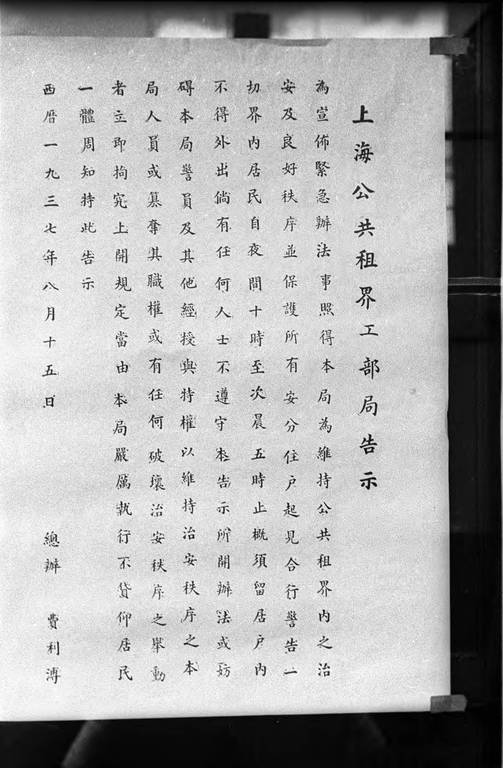 上海公共租界工部局告示
為宣佈緊急辦法事照得本局為維持公共租界內之治
安及良好秩序並保護所有安分住戶起見合行警告一
切界內居民自夜間十時至次晨五時止概須留居戶內
不得外出倘有任何人士不遵守本告示所開辦法或妨
碍本局警員及其他經授與特權以維持治安秩序之本
局人員或篡奪其職權或有任何破壞治安秩序之舉動
者立即拘究上開規定當由本局嚴厲執行不貸仰居民
一體周知特此告示
西曆一九三七年八月十五日
總辦 費利溥